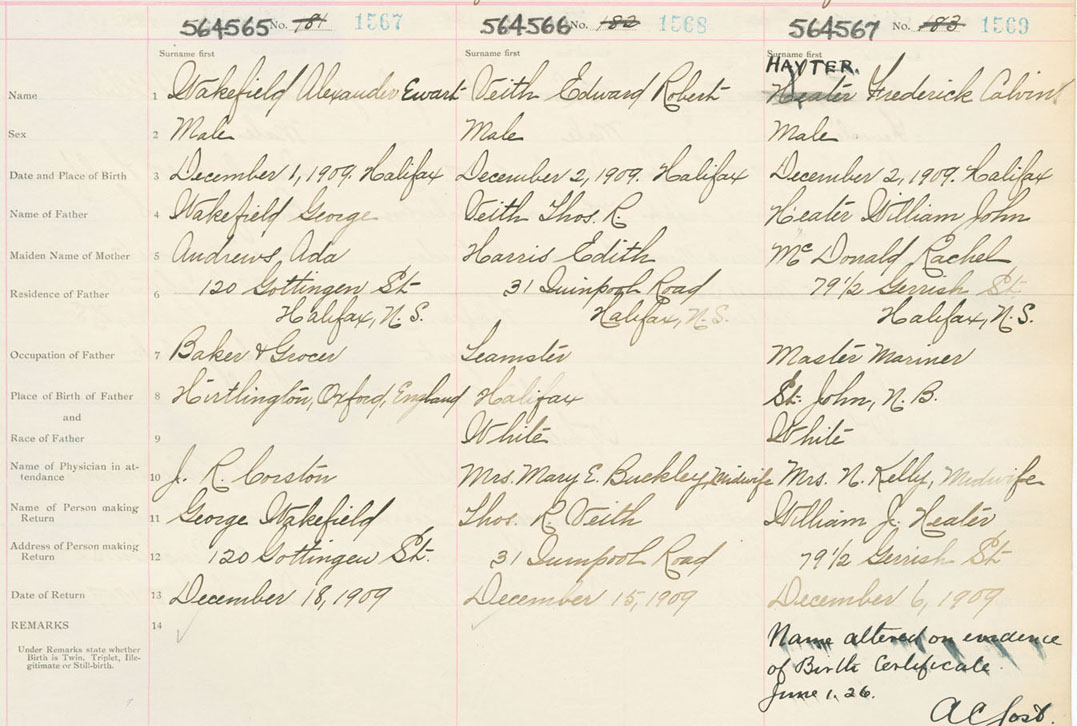 564565 No. 181 1567 564566 No. 182 1568 564567 No. 183 1569
Surname first Surname first Surname first
HAYTER.
Name 1 Wakefield Alexander Ewart Veith Edward Robert Heater Frederick Calvin
Sex 2 Male Male Male
Date and Place of Birth 3 December 1, 1909. Halifax December 2, 1909. Halifax December 2, 1909. Halifax
Name of Father 4 Wakefield George Veith Thos. R. Heater William John
Maiden Name of Mother 5 Andrews, Ada Harris Edith McDonald Rachel
Residence of Father 6 120 Gottingen St. 31 Quinpool Road 79 1/2 Gerrish St.
Halifax, N.S. Halifax, N.S. Halifax, N.S.
Occupation of Father 7 Baker & Grocer Teamster Master Mariner
Place of Birth of Father 8 Hirtlington, Oxford, England Halifax St. John, N.B.
and
Race of Father 9 White White
Name of Physician in at-
tendance 10 J. R. Corston Mrs. Mary E. Buckley, Midwife Mrs. N. Kelly, Midwife
Name of Person making
Return 11 George Wakefield Thos. R. Veith William J. Heater
Address of Person making
Return 12 120 Gottingen St. 31 Quinpool Road 79 1/2 Gerrish St
Date of Return 13 December 18, 1909 December 15, 1909 December 6, 1909
REMARKS 14
Under Remarks state whether
Birth is Twin, Triplet, Ille-
gitimate or Still-birth.
Name altered on evidence
of Birth Certificate.
June 1. 26.
A C Jost.